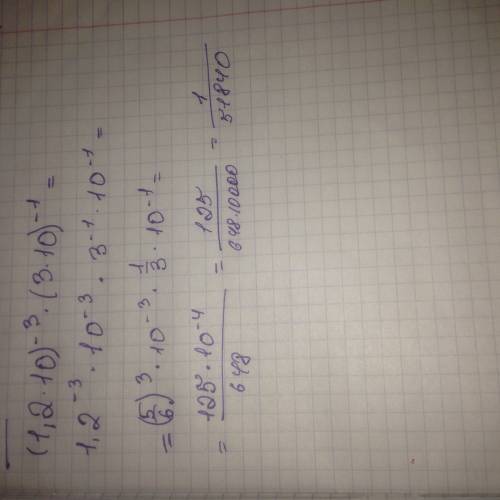 (1,2·10)⁻³·(3·10)⁻¹ =
1,2⁻³·10⁻³·3⁻¹·10⁻¹ =
= (5/6)³·10⁻³·1/3·10⁻¹ =
= 125·10⁻⁴/648 = 125/648·10000 = 1/51840